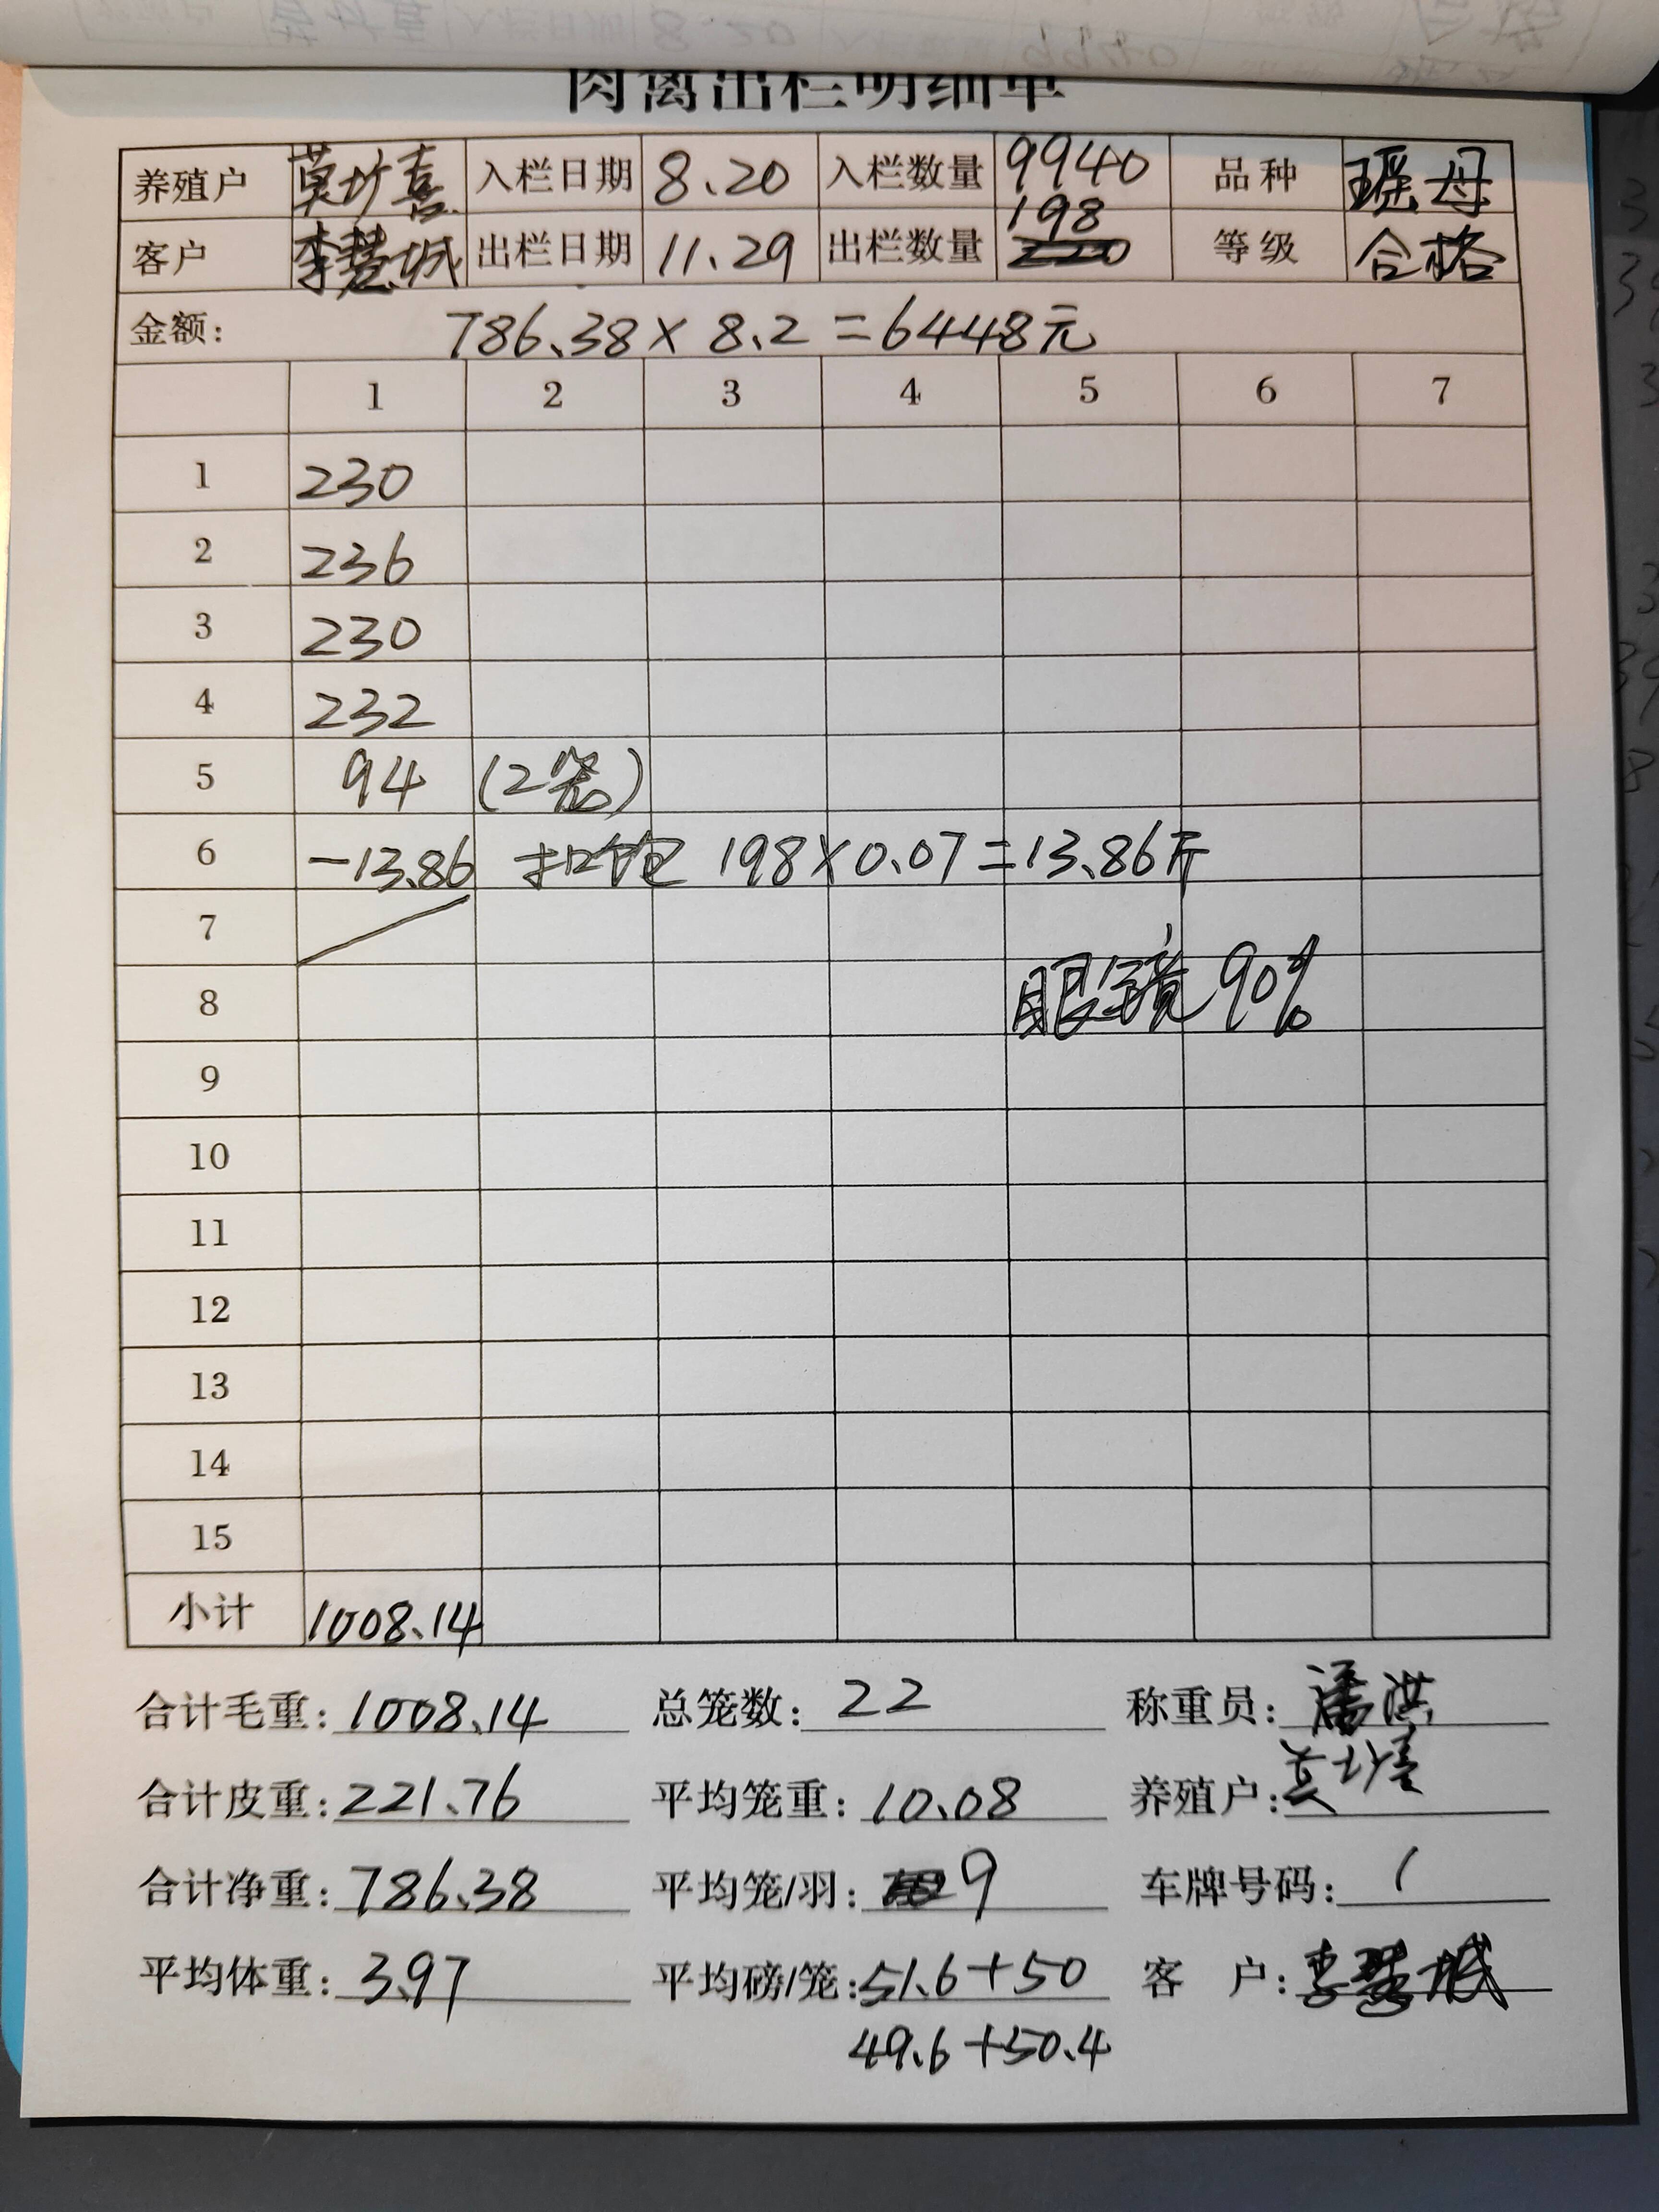 肉禽出栏明细单
养殖户 莫计喜 入栏日期 8.20 入栏数量 9940 品种 瑶母
客户 李慧城 出栏日期 11.29 出栏数量 198 等级 合格
金额: 786.38×8.2=6448元
1 2 3 4 5 6 7
1 230
2 236
3 230
4 232
5 94 (2笼)
6 -13.86 扣饱 198×0.07=13.86斤
7
8 眼镜90%
9
10
11
12
13
14
15
小计 1008.14
合计毛重: 1008.14 总笼数: 22 称重员: 潘洪
合计皮重: 221.76 平均笼重: 10.08 养殖户:
合计净重: 786.38 平均笼/羽: 9 车牌号码: 1
平均体重: 3.97 平均磅/笼: 51.6+50 客 户: 李慧城
49.6+50.4